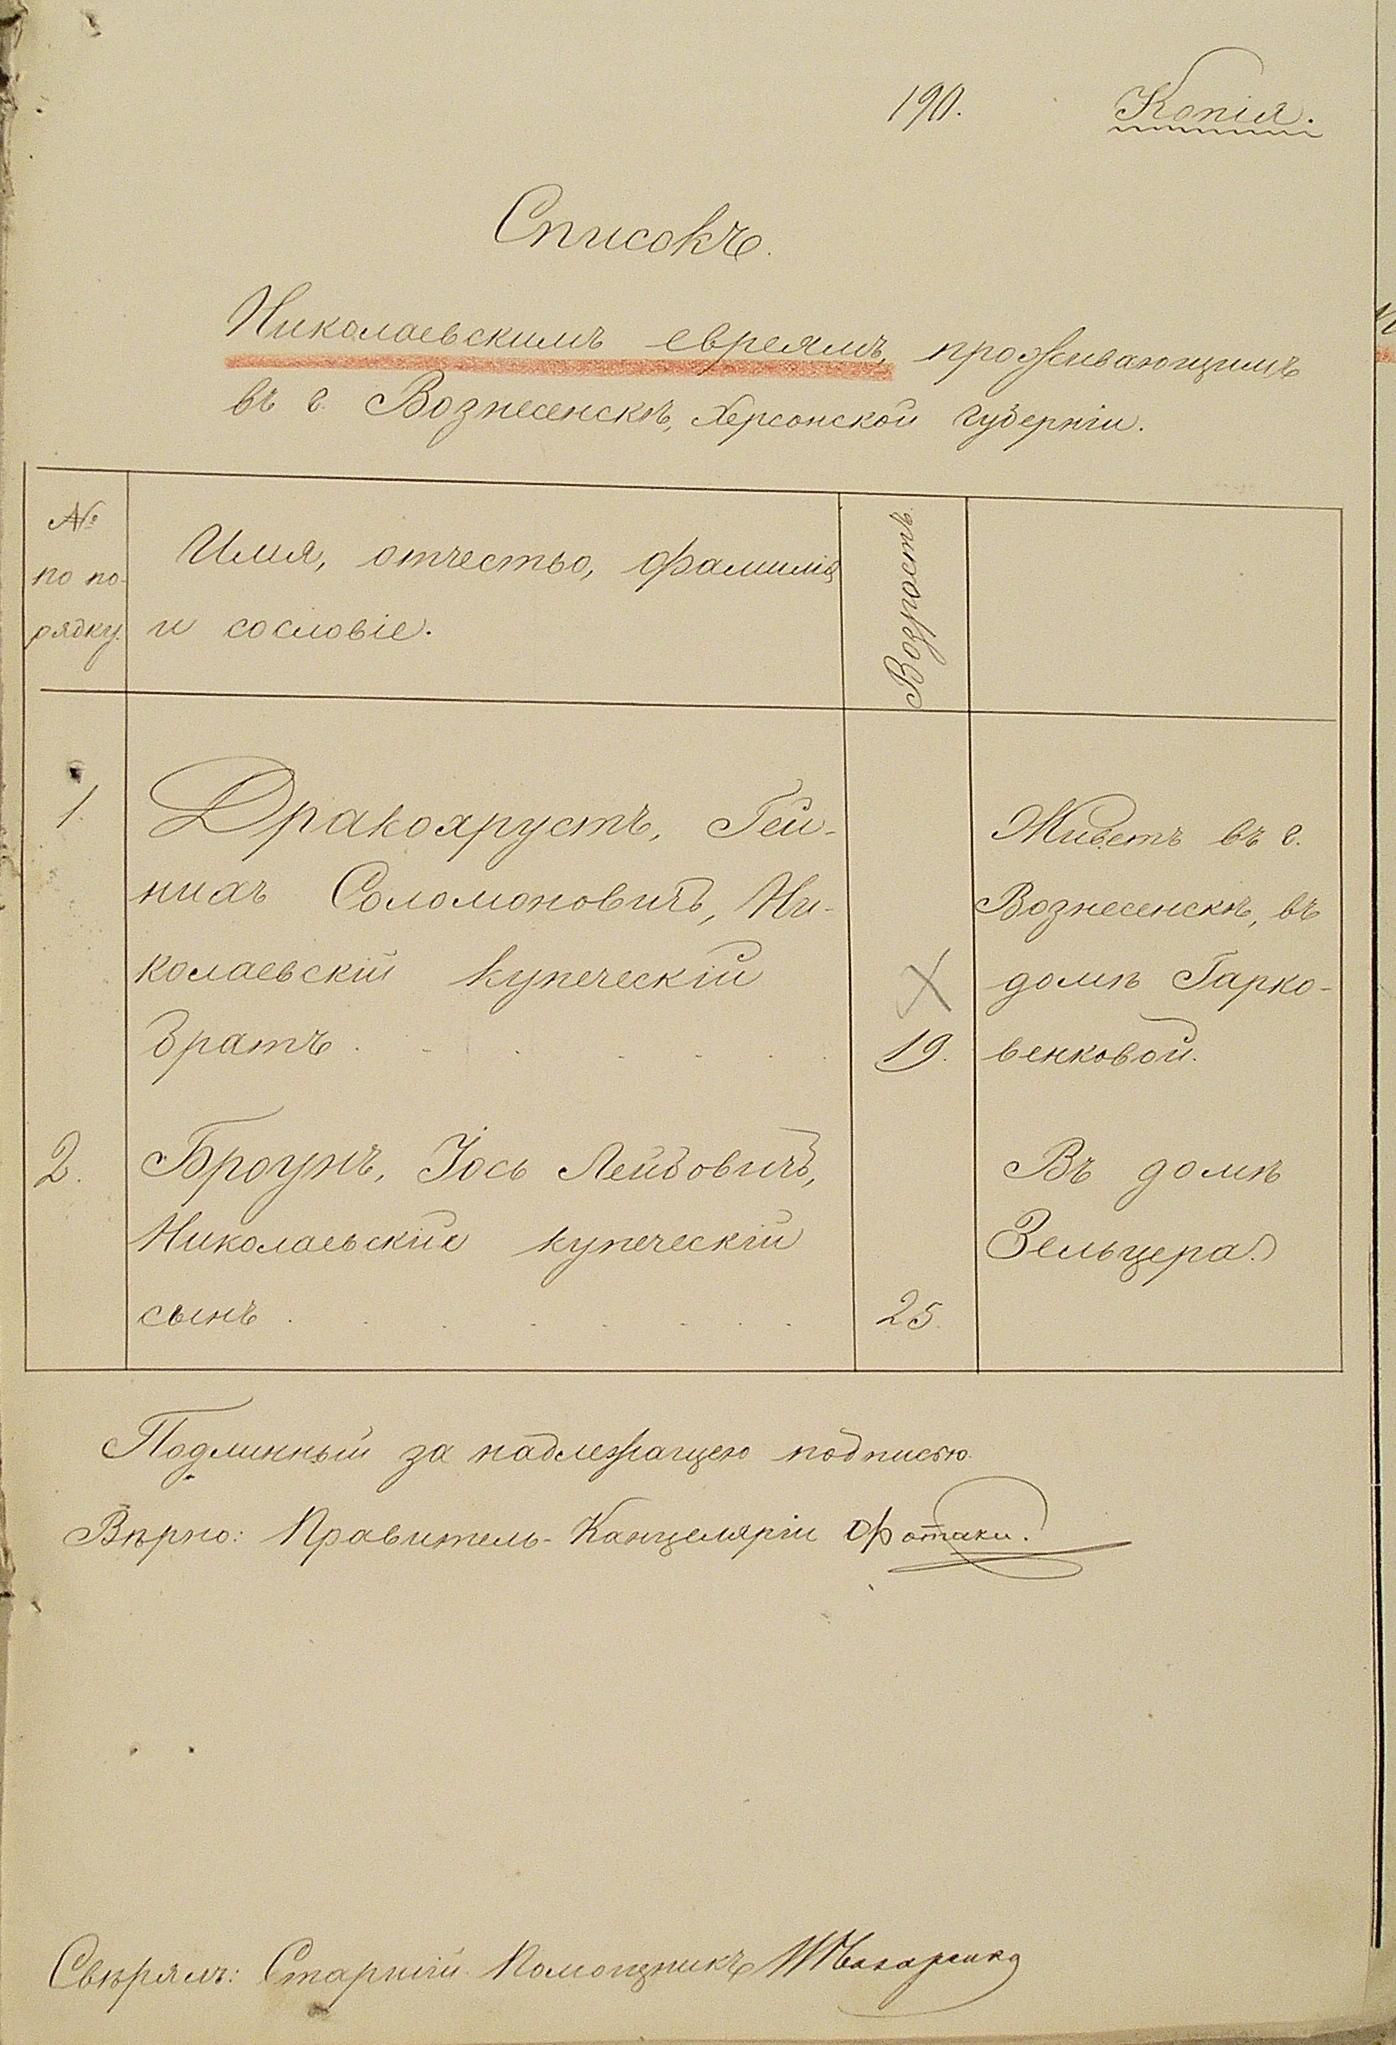 190.
Копія.
Списокъ.
Николаевскимъ евреямъ, проживающимъ
въ г. Вознесенскѣ, Херсонской губерніи.
№
по по-
рядку.
Имя, отчество, фамилія
и сословіе.
Возрастъ.
1.
Дракохрустъ, Гей-
нихъ Соломоновичъ, Ни-
колаевскій купеческій
братъ
19.
Живетъ въ г.
Вознесенскѣ, въ
домѣ Гарко-
венковой.
2.
Броунъ, Іось Лейбовичъ,
Николаевскій купеческій
сынъ
25.
Въ домѣ
Зельцера.
Подлинный за надлежащею подписью.
Вѣрно: Правитель-Канцеляріи Фотаки.
Свѣрялъ: Старшій Помощникъ